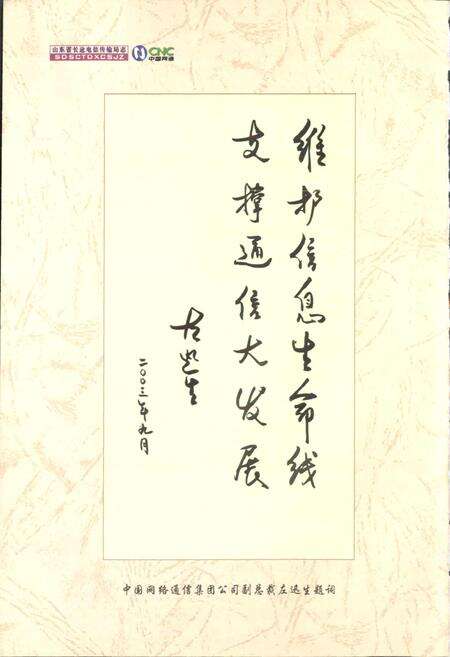 山东省长途电信传输局志
SDSCTDXCSJZ
CNC
中国网通
维护信息生命线
支撑通信大发展
左迅生
二〇〇三年九月
中国网络通信集团公司副总裁左迅生题词